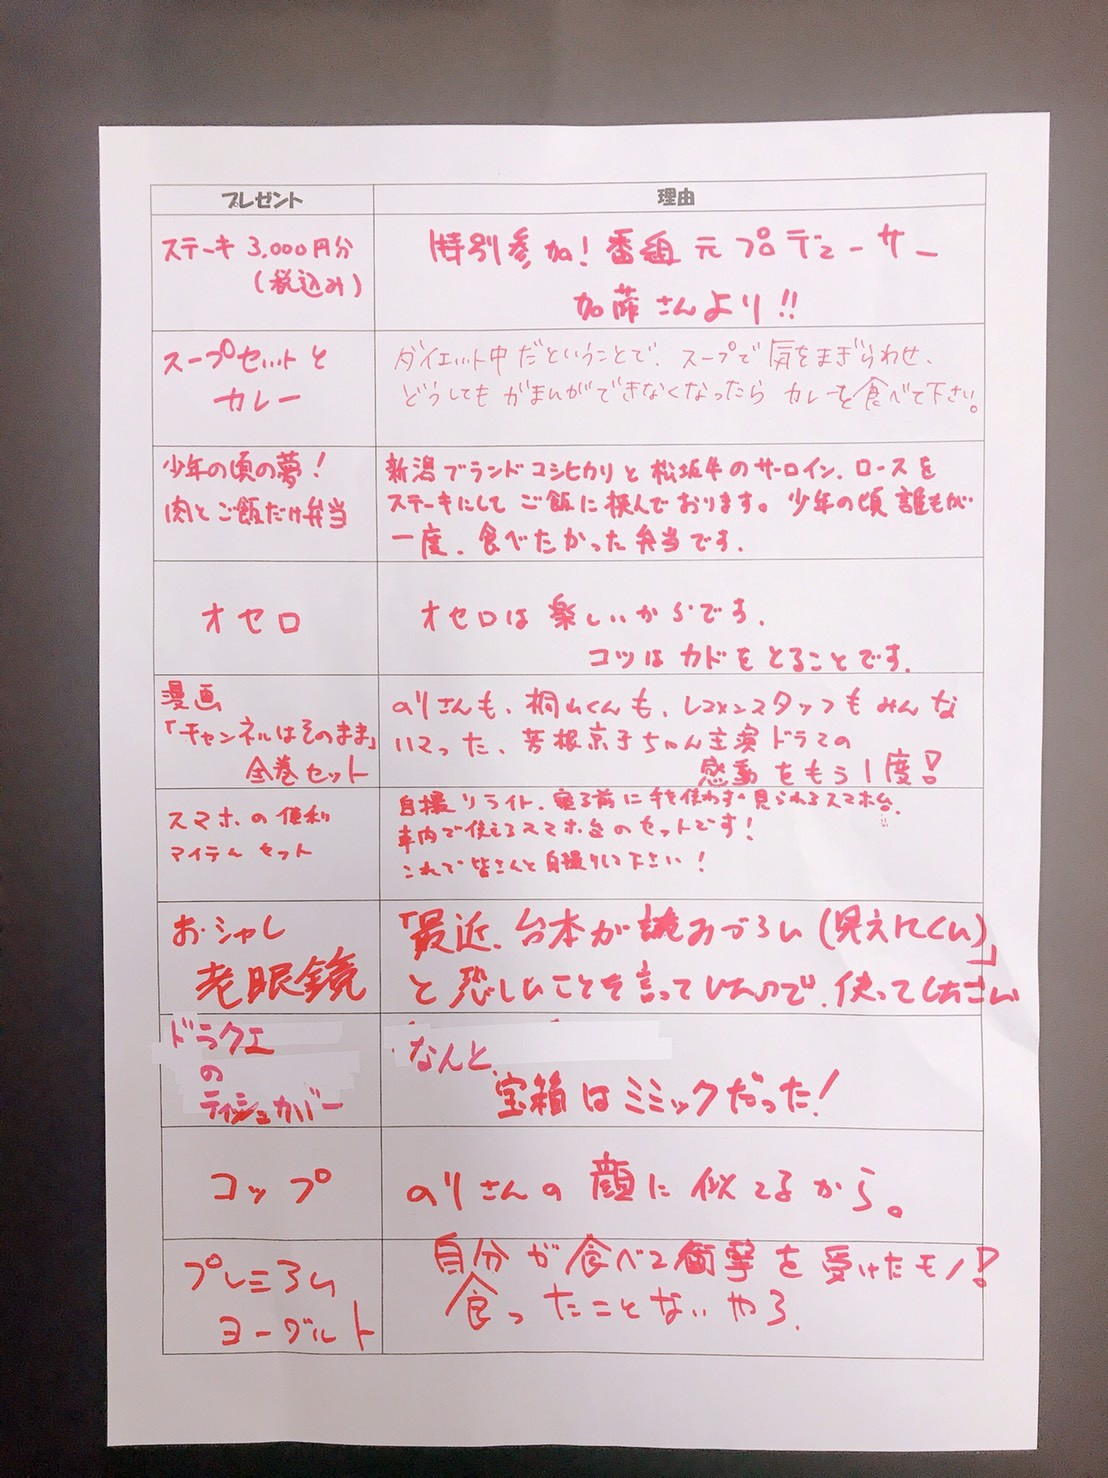 プレゼント 理由
ステーキ 3,000円分
(税込み)
特別参加!番組元プロデューサー
加藤さんより!!
スープセットと
カレー
ダイエット中だということで、スープで気をまぎらわせ、
どうしてもがまんができなくなったらカレーを食べて下さい。
少年の頃の夢!
肉とご飯だけ弁当
新潟ブランドコシヒカリと松坂牛のサーロイン、ロースを
ステーキにしてご飯に挟んでおります。少年の頃誰もが
一度、食べたかった弁当です。
オセロ
オセロは楽しいからです。
コツはカドをとることです。
漫画
「チャンネルはそのまま」
全巻セット
のりさんも、桐山くんも、レコメンスタッフもみんな
ハマった、芳根京子ちゃん主演ドラマの
感動をもう1度!
スマホの便利
アイテムセット
自撮りライト、寝る前に手を使わず見られるスマホ台、
車内で使えるスマホ台のセットです!
これで皆さんと自撮りして下さい!
おシャレ
老眼鏡
「最近、台本が読みづらい(見えにくい)」
と恐しいことを言っていたので、使ってください
ドラクエ
の
ティシュカバー
なんと、
宝箱はミミックだった!
コップ
のりさんの顔に似てるから。
プレミアム
ヨーグルト
自分が食べて衝撃を受けたモノ!
食ったことないやろ、